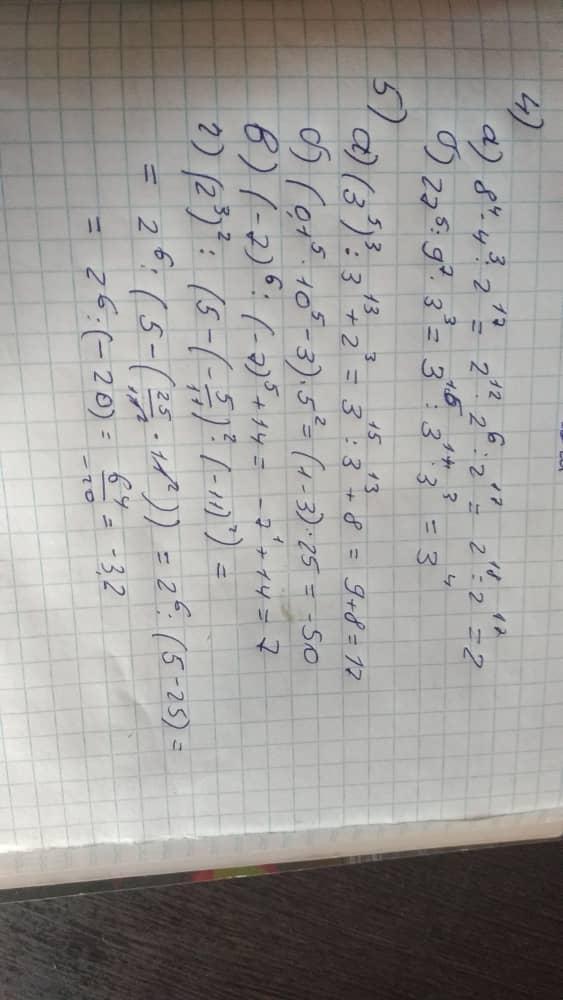 4)
а) 8⁴ · 4³ : 2¹⁷ = 2¹² · 2⁶ : 2¹⁷ = 2¹⁸ : 2¹⁷ = 2
б) 27⁵ : 9⁷ · 3³ = 3¹⁵ : 3¹⁴ · 3³ = 3⁴
5)
а) (3⁵)³ : 3¹³ + 2³ = 3¹⁵ : 3¹³ + 8 = 9 + 8 = 17
б) (0,1⁵ · 10⁵ - 3) · 5² = (1 - 3) · 25 = -50
в) (-7)⁶ : (-7)⁵ + 14 = -7¹ + 14 = 7
г) (2³)² : (5 - (-5/11)² · (-11)²) =
= 2⁶ : (5 - (25/11² · 11²)) = 2⁶ : (5 - 25) =
= 2⁶ : (-20) = 64/-20 = -3,2